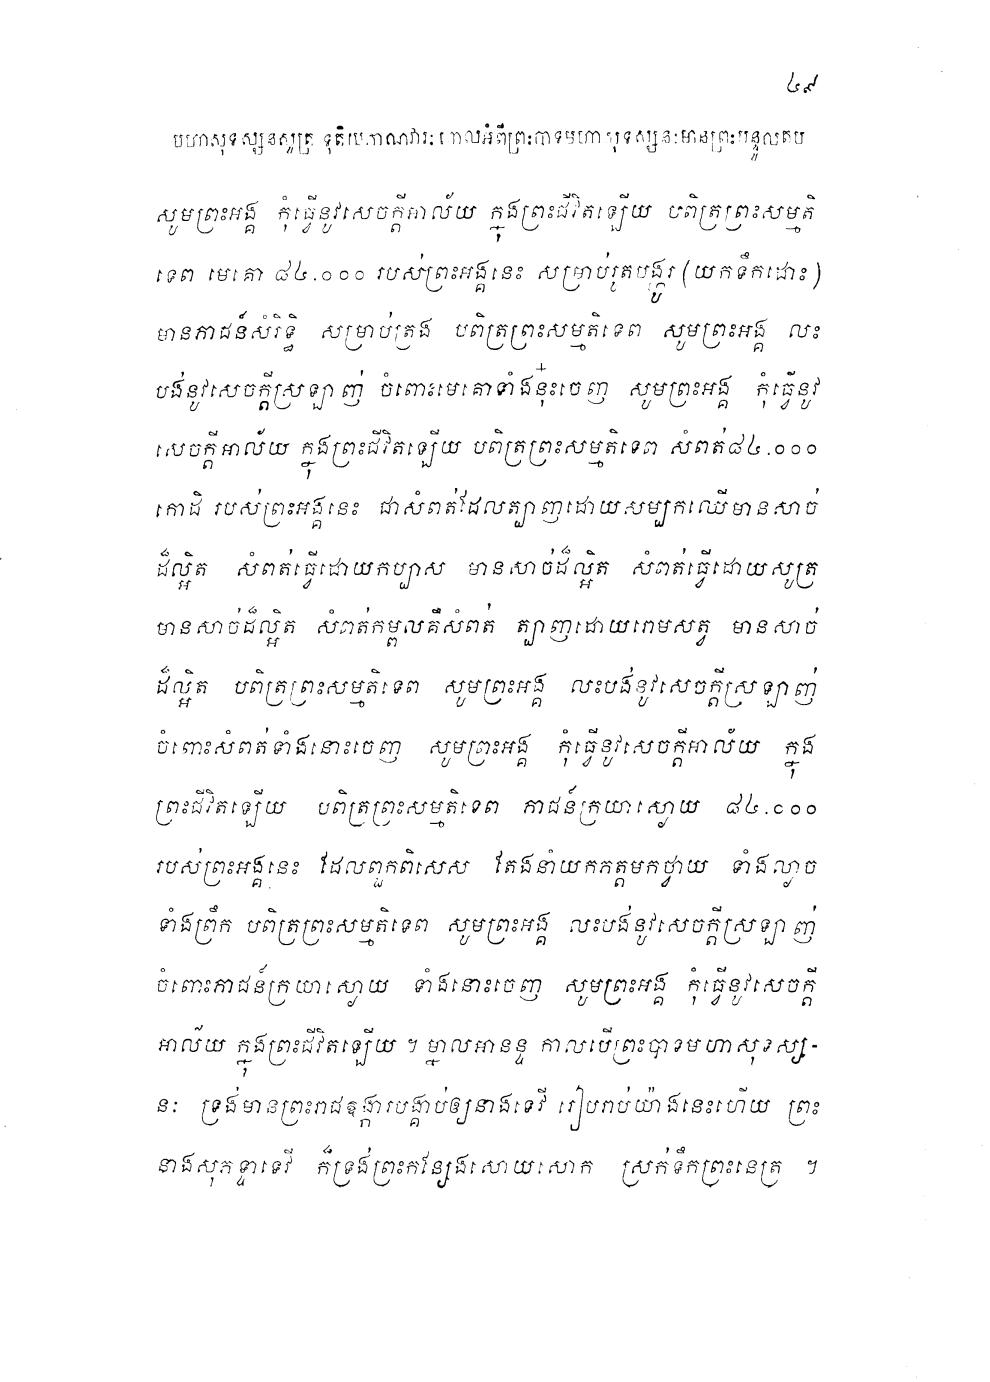 ៤៩
មហាសុទស្សនសូត្រ ទុតិយភាណវារៈ ពោលអំពីព្រះបាទមហាសុទស្សនៈមានព្រះបន្ទូលតប
សូមព្រះអង្គ កុំធ្វើនូវសេចក្តីអាល័យ ក្នុងព្រះជីវិតឡើយ បពិត្រព្រះសម្មតិ
ទេព មេគោ ៨៤.០០០ របស់ព្រះអង្គនេះ សម្រាប់រូតបង្ហូរ (យកទឹកដោះ)
មានភាជន៍សំរិទ្ធិ សម្រាប់ត្រង បពិត្រព្រះសម្មតិទេព សូមព្រះអង្គ លះ
បង់នូវសេចក្តីស្រឡាញ់ ចំពោះមេគោទាំងនុ៎ះចេញ សូមព្រះអង្គ កុំធ្វើនូវ
សេចក្តីអាល័យ ក្នុងព្រះជីវិតឡើយ បពិត្រព្រះសម្មតិទេព សំពត់៨៤.០០០
កោដិ របស់ព្រះអង្គនេះ ជាសំពត់ដែលត្បាញដោយសម្បកឈើមានសាច់
ដ៏ល្អិត សំពត់ធ្វើដោយកប្បាស មានសាច់ដ៏ល្អិត សំពត់ធ្វើដោយសូត្រ
មានសាច់ដ៏ល្អិត សំពត់កម្ពលគឺសំពត់ ត្បាញដោយរោមសត្វ មានសាច់
ដ៏ល្អិត បពិត្រព្រះសម្មតិទេព សូមព្រះអង្គ លះបង់នូវសេចក្តីស្រឡាញ់
ចំពោះសំពត់ទាំងនោះចេញ សូមព្រះអង្គ កុំធ្វើនូវសេចក្តីអាល័យ ក្នុង
ព្រះជីវិតឡើយ បពិត្រព្រះសម្មតិទេព ភាជន៍ក្រយាស្ងោយ ៨៤.០០០
របស់ព្រះអង្គនេះ ដែលពួកពិសេស តែងនាំយកភត្តមកថ្វាយ ទាំងល្ងាច
ទាំងព្រឹក បពិត្រព្រះសម្មតិទេព សូមព្រះអង្គ លះបង់នូវសេចក្តីស្រឡាញ់
ចំពោះភាជន៍ក្រយាស្ងោយ ទាំងនោះចេញ សូមព្រះអង្គ កុំធ្វើនូវសេចក្តី
អាល័យ ក្នុងព្រះជីវិតឡើយ ។ ម្នាលអានន្ទ កាលបើព្រះបាទមហាសុទស្ស-
នៈ ទ្រង់មានព្រះរាជឱង្ការបង្គាប់ឲ្យនាងទេវី រៀបរាប់យ៉ាងនេះហើយ ព្រះ
នាងសុភទ្ទាទេវី ក៏ទ្រង់ព្រះកន្សែងសោយសោក ស្រក់ទឹកព្រះនេត្រ ។